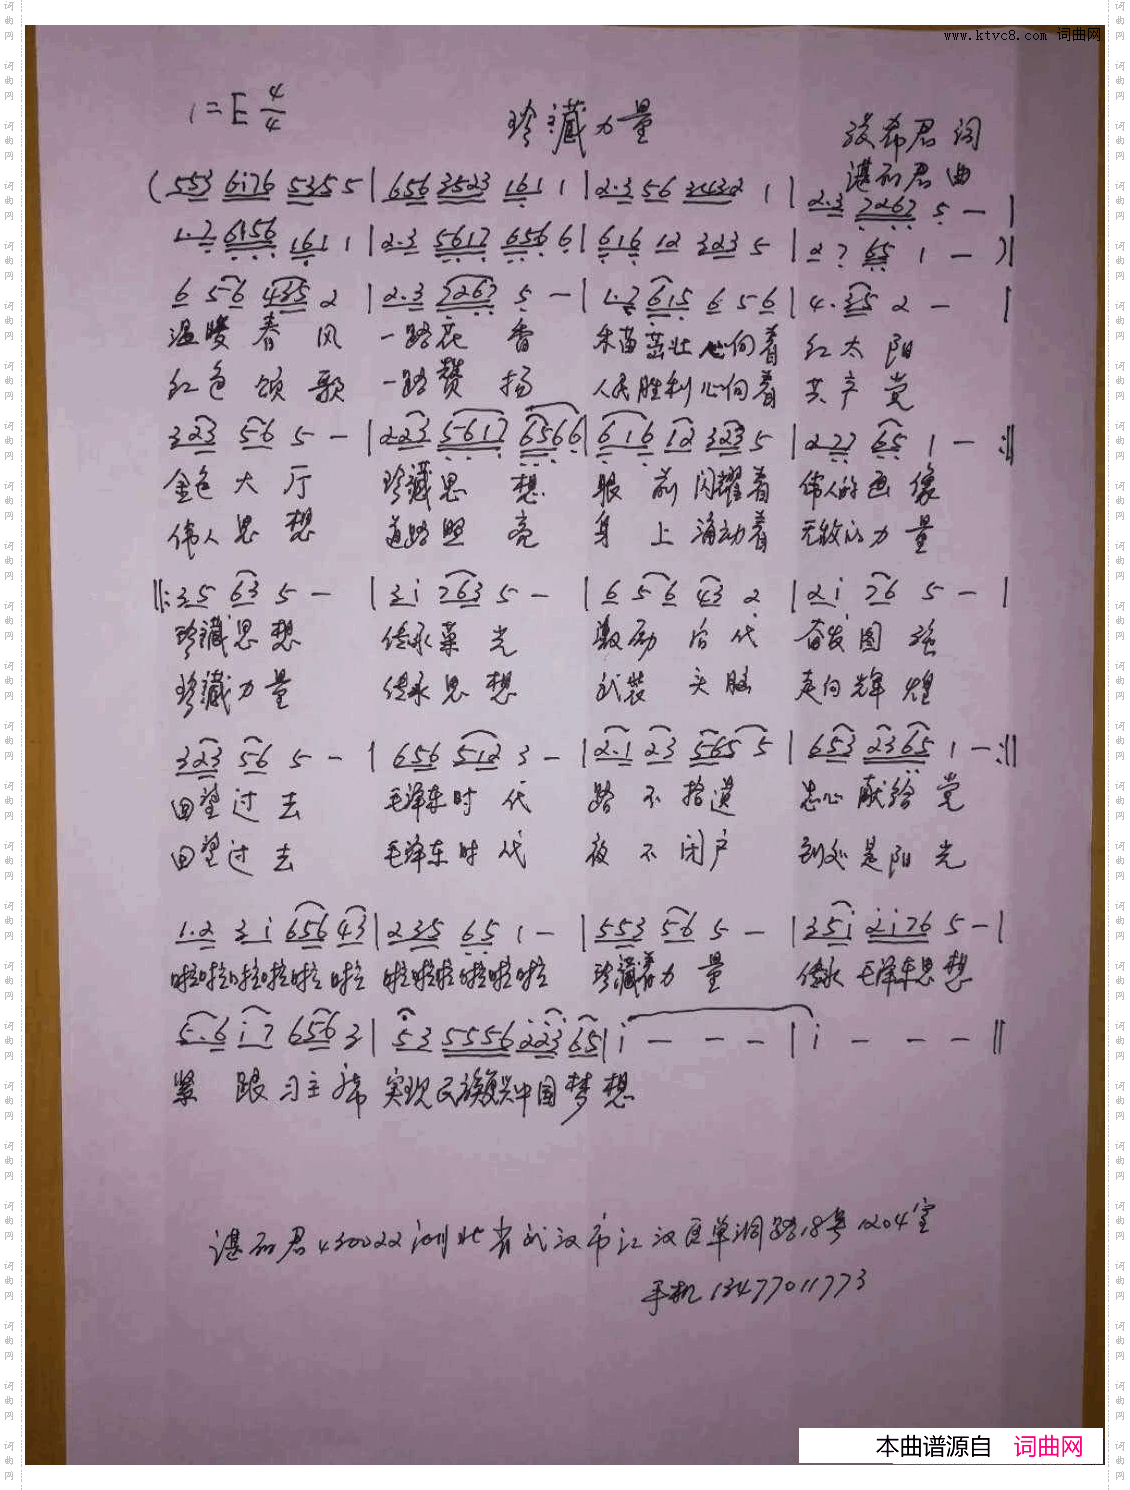 www.ktvc8.com 词曲网
1=E 4/4
珍藏力量
张希君 词
谌丽君 曲
(553 6i76 535 5 | 656 3523 161 1 | 2·3 56 3432 1 | 2·3 7267 5 - |
1·7 6156 161 1 | 2·3 5617 656 6 | 616 12 323 5 | 2 7 65 1 - )|
6 56 435 2 | 2·3 7267 5 - | 1·7 615 6 56 | 4·35 2 - |
温暖春风 一路花香 禾苗茁壮心向着 红太阳
红色颂歌 一路赞扬 人民胜利心向着 共产党
323 56 5 - | 223 5617 6566 | 616 12 323 5 | 277 65 1 - :||
金色大厅 珍藏思想 眼前闪耀着 伟人的画像
伟人思想 道路照亮 身上涌动着 无敌的力量
||: 35 63 5 - | 3i 763 5 - | 6 56 43 2 | 2i 76 5 - |
珍藏思想 传承荣光 激励后代 奋发图强
珍藏力量 传承思想 武装头脑 走向辉煌
323 56 5 - | 656 512 3 - | 2·1 23 565 5 | 653 2365 1 - :||
回望过去 毛泽东时代 路不拾遗 忠心献给党
回望过去 毛泽东时代 夜不闭户 到处是阳光
1·2 3i 656 43 | 235 65 1 - | 553 56 5 - | 35i 2i76 5 - |
啦啦啦啦啦啦 啦啦啦啦啦啦 珍藏着力量 传承毛泽东思想
5·6 i7 656 3 | 53 5556 223 65 | i - - - | i - - - ||
紧跟习主席 实现民族复兴中国梦想
谌丽君430022湖北省武汉市江汉区单洞路18号1204室
手机13477011773
本曲谱源自 词曲网